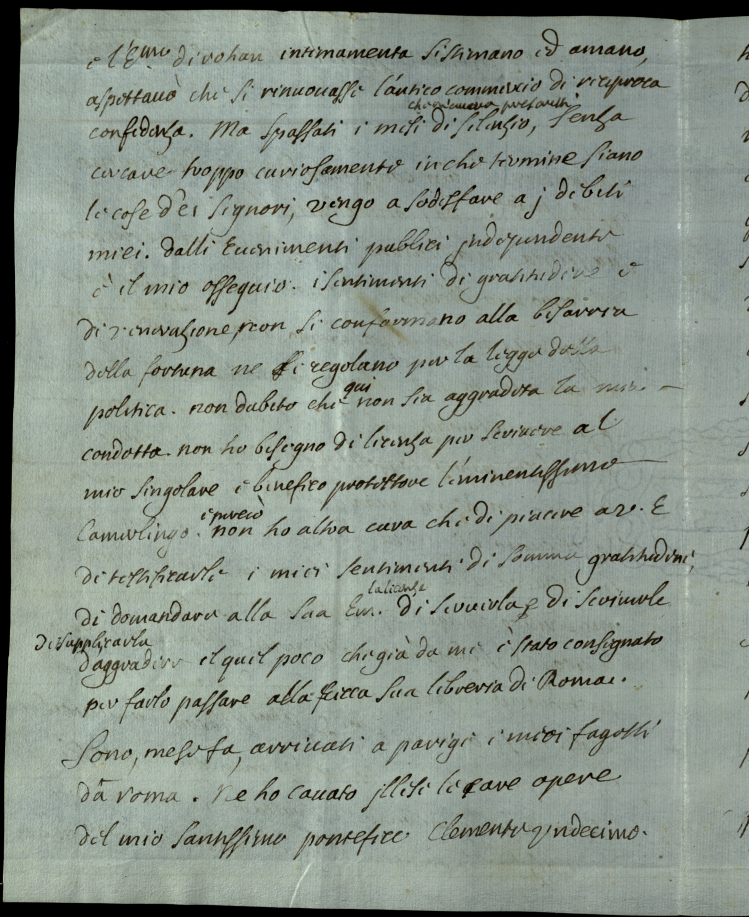 e l'Emo di rohan intimamente si stimano ed amano,
aspettavo che si rinuouasse l'antico commercio di reciproca
confidenza. Ma spassati i mesi di silenzio, senza
cercare troppo curiosamente in che termine siano
le cose d'ei Signori, vengo a sodisfare a j debiti
miei. dalli Evenimenti publici independente
è il mio ossequio. i sentimenti di gratitudine e
di venerazione, non si conformano alla bisarria
della fortuna ne si regolano per la legge della
politica. non dubito che qui non sia aggradita la mia
condotta. non ho bisogno di licenza per scrivere al
mio singolare e benefico protettore l'eminentissimo
Camerlingo. e perciò non ho altra cura che di piacere a
di testificarle i miei sentimenti di somma gratitudine,
di domandare alla Sua Em. la licenza di scriverla, e di
di supplicarla
d'aggradire il quel poco che già da me è stato consignato
per farlo passare alla ricca sua libreria di Roma.
Sono, mese fa, arrivati a parigi i miei fagotti
da roma. Ne ho cavato illese le care opere
del mio santissimo pontefice Clemente undecimo.